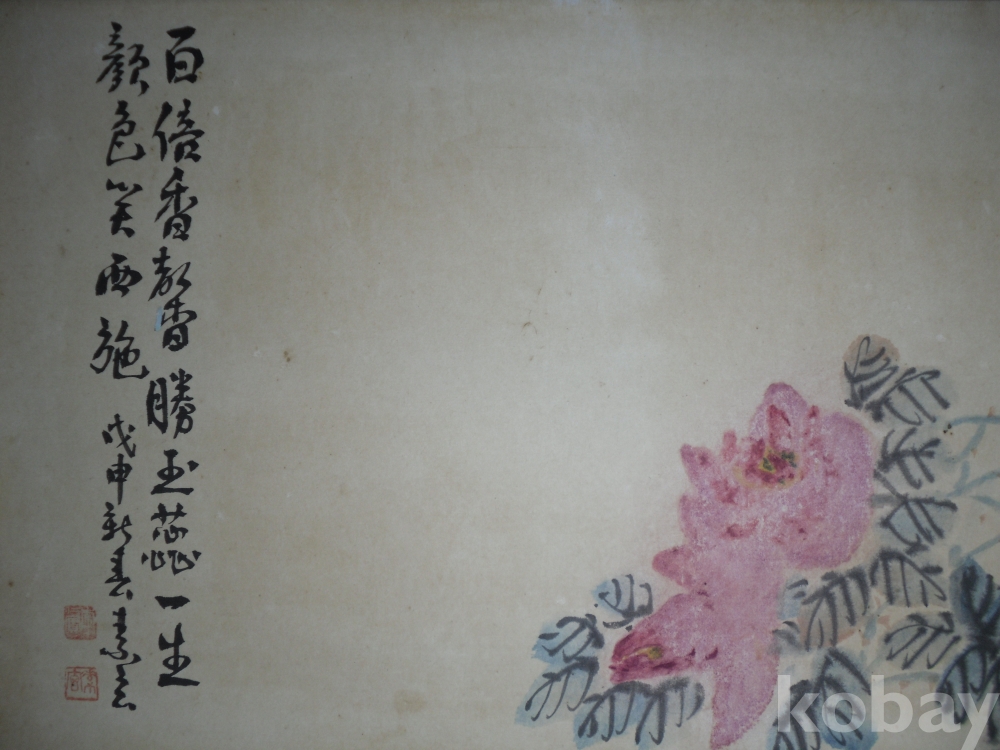 百倍香馨勝玉蕊一生
顏色笑西施 戊申新春素玄
kobay